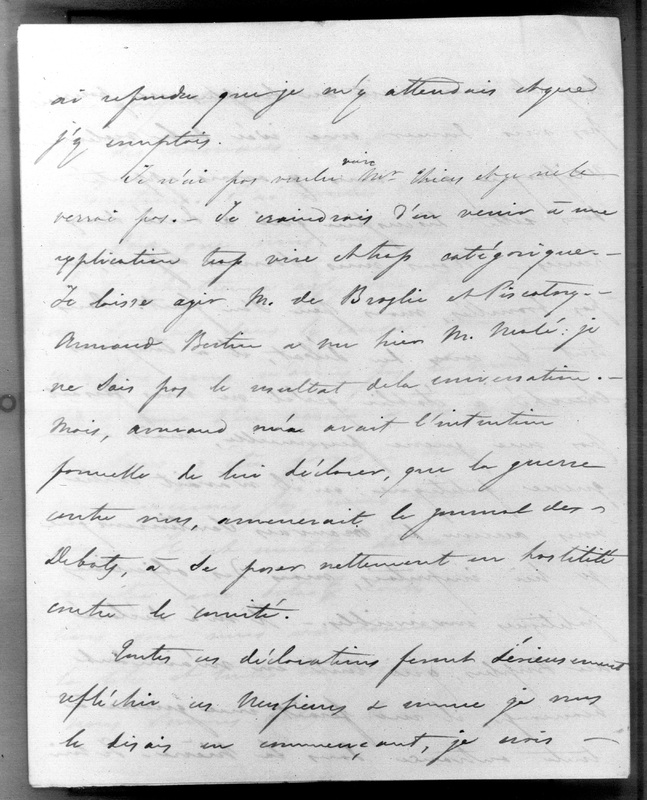 ai répondu que je m'y attendais et que
j'y comptais.
Je n'ai pas voulu voir Mr Thiers et je ne le
verrai pas. – Je craindrais d'en venir à une
explication trop vive et trop catégorique. –
Je laisse agir M. de Broglie et Piscatory. –
Armand Bertin a vu hier M. Molé : je
ne sais pas le resultat de la conversation. –
Mais, Armand avait l'intention
formelle de lui déclarer, que la guerre
contre vous, amenerait le journal des
Debats, à se poser nettement en hostilité
contre le comité.
Toutes ces déclarations feront sérieusement
reflêchir ces Messieurs & comme je vous
le disais en commençant, je crois –